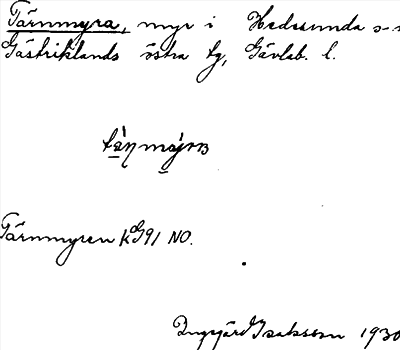 Tärnmyra, myr i Hedesunda s-n
Gästriklands östra tg, Gävleb. l.
Tärnmyren KG91 NO.
Ingegärd Isaksson 1930